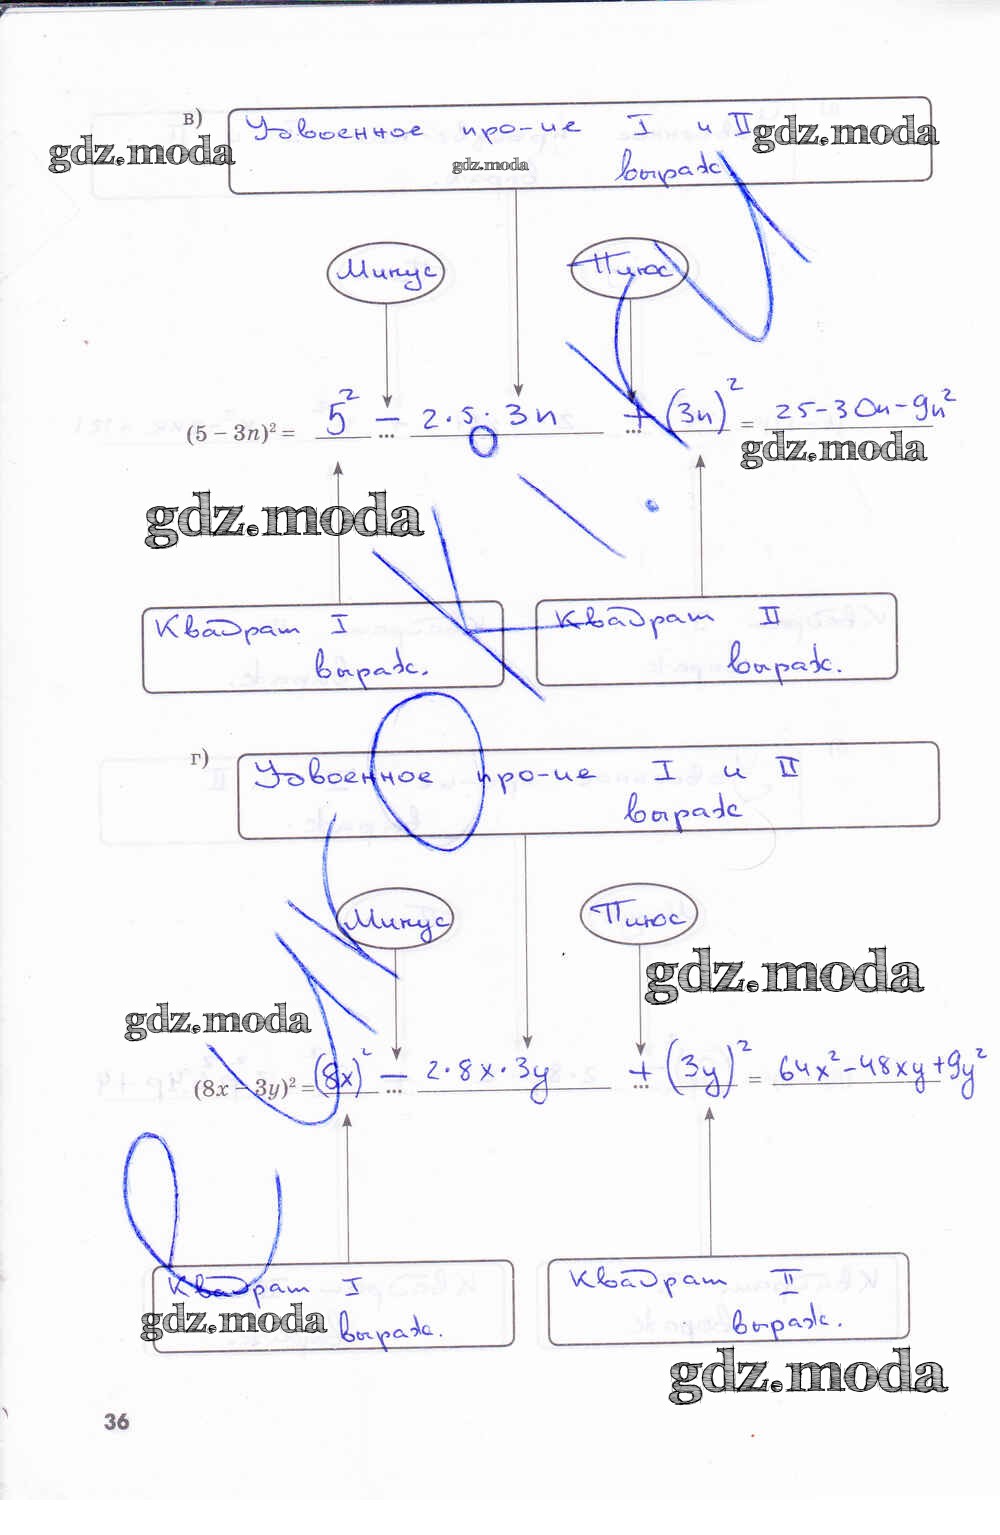 в)
Удвоенное про-ие I и II
выраж.
gdz.moda
gdz.moda
gdz.moda
Минус
Плюс
(5 – 3n)² = 5² – 2·5·3n + (3n)² = 25-30n-9n²
gdz.moda
gdz.moda
Квадрат I
выраж.
Квадрат II
выраж.
г)
Удвоенное про-ие I и II
выраж
Минус
Плюс
gdz.moda
gdz.moda
(8x – 3y)² = (8x)² – 2·8x·3y + (3y)² = 64x²-48xy+9y²
Квадрат I
выраж.
Квадрат II
выраж.
gdz.moda
gdz.moda
36